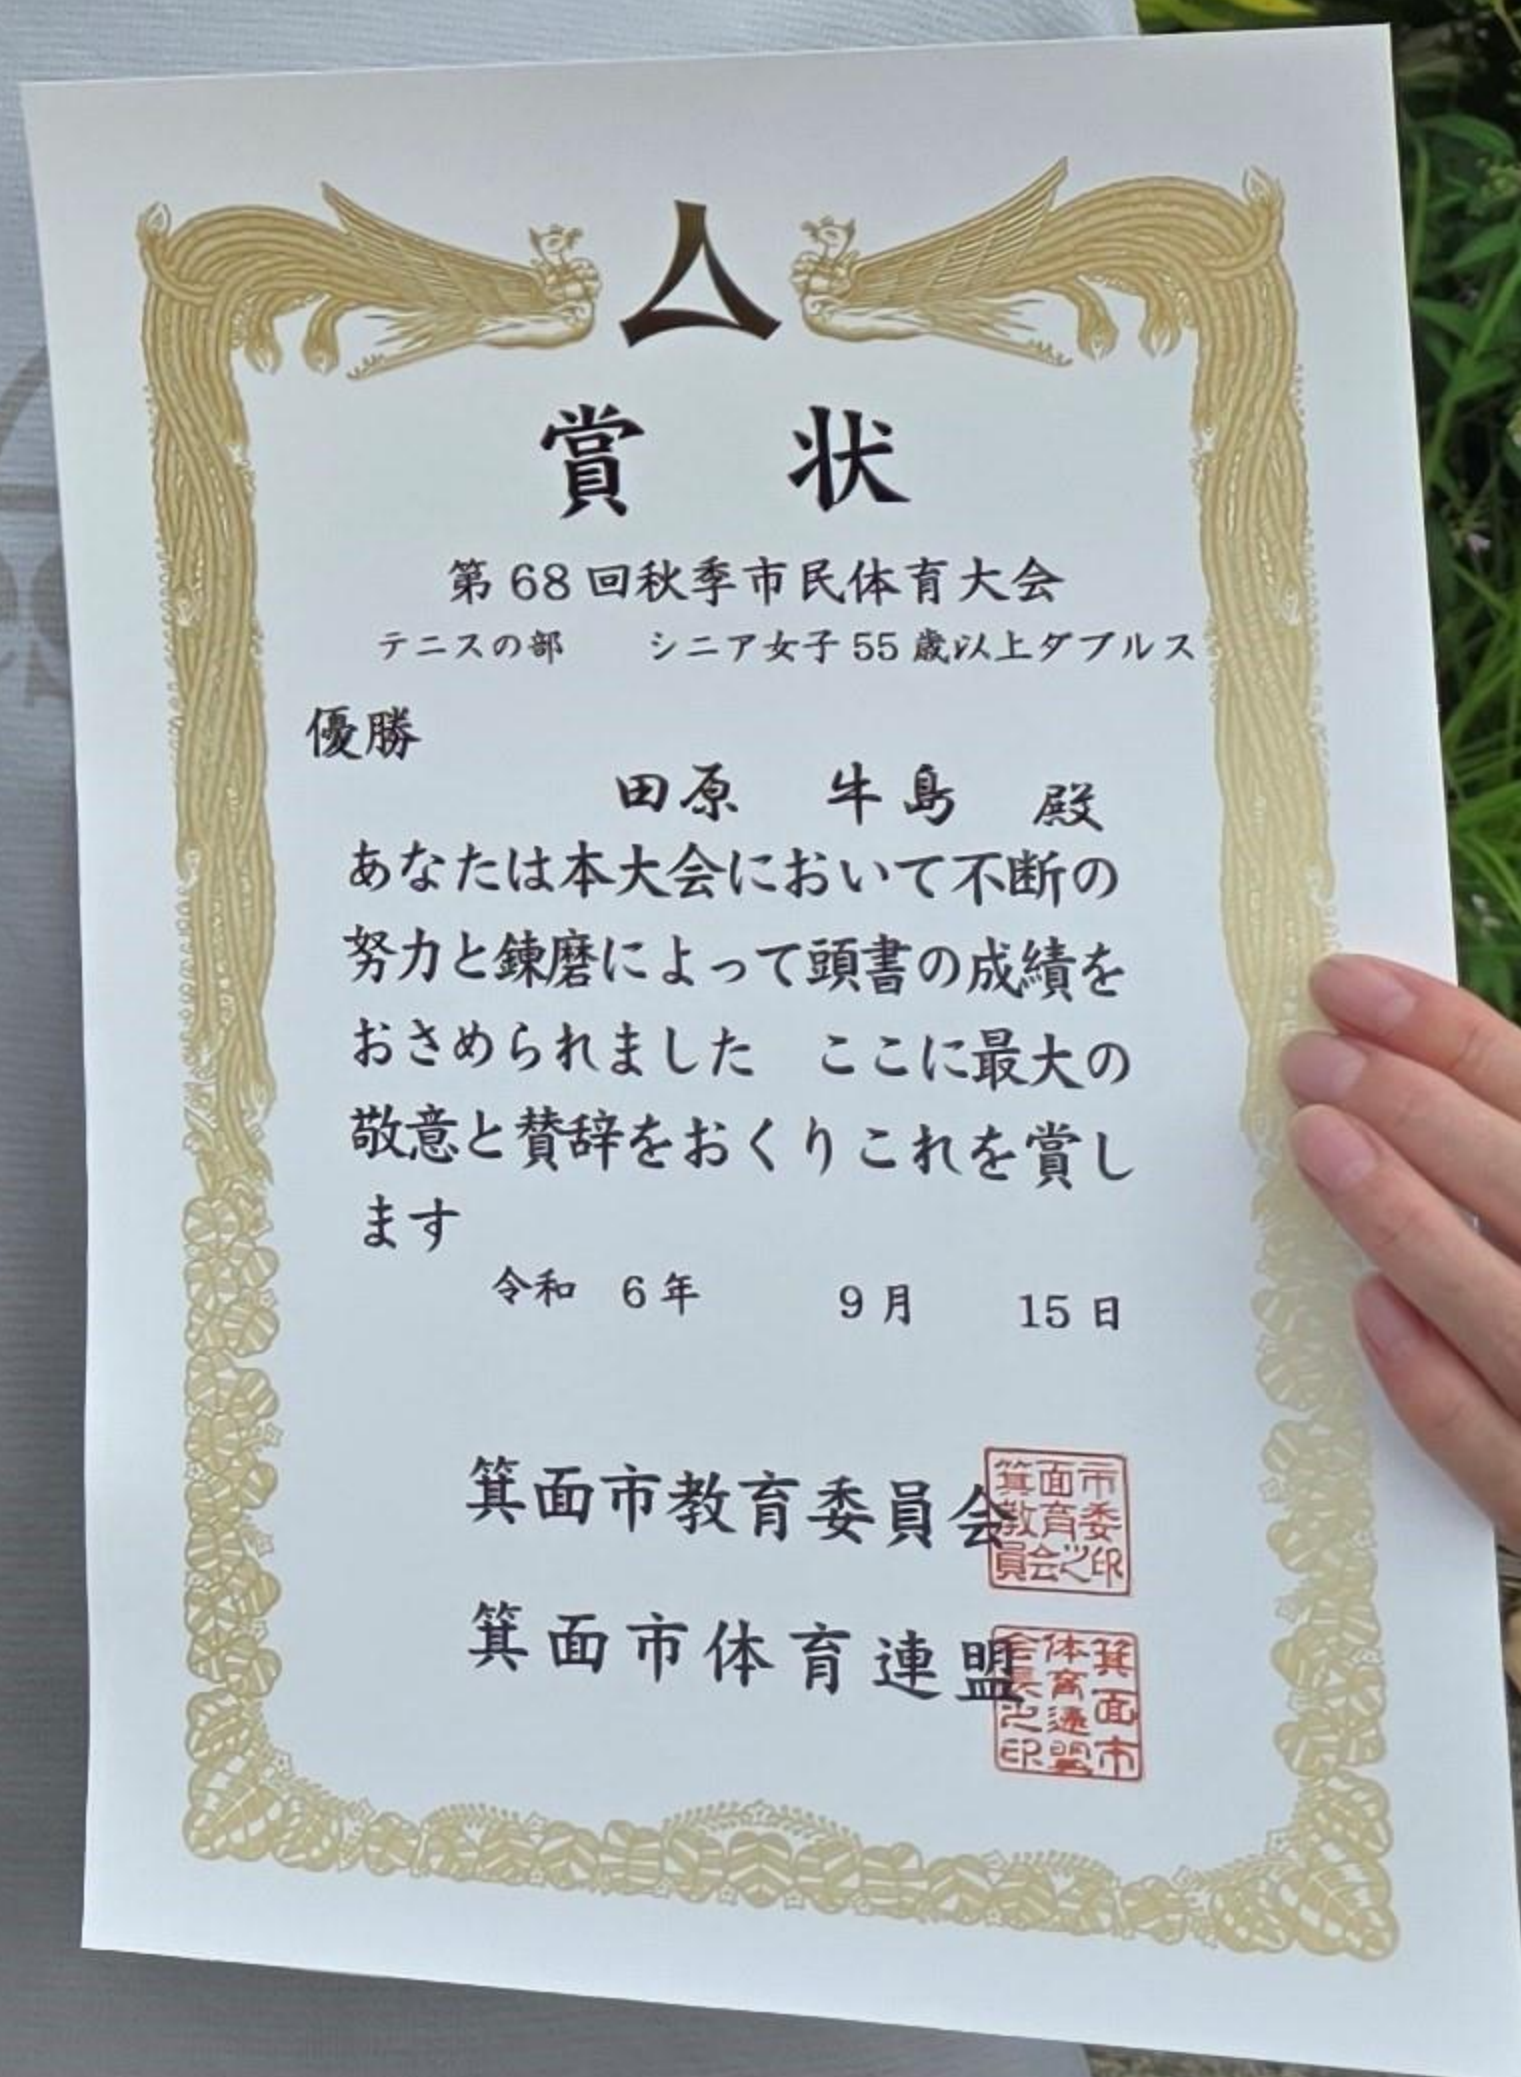 賞状
第68回秋季市民体育大会
テニスの部　シニア女子55歳以上ダブルス
優勝
田原　牛島　殿
あなたは本大会において不断の
努力と錬磨によって頭書の成績を
おさめられました　ここに最大の
敬意と賛辞をおくりこれを賞し
ます
令和　6年　9月　15日
箕面市教育委員会
箕面市教育委員会之印
箕面市体育連盟
箕面市体育連盟会長之印